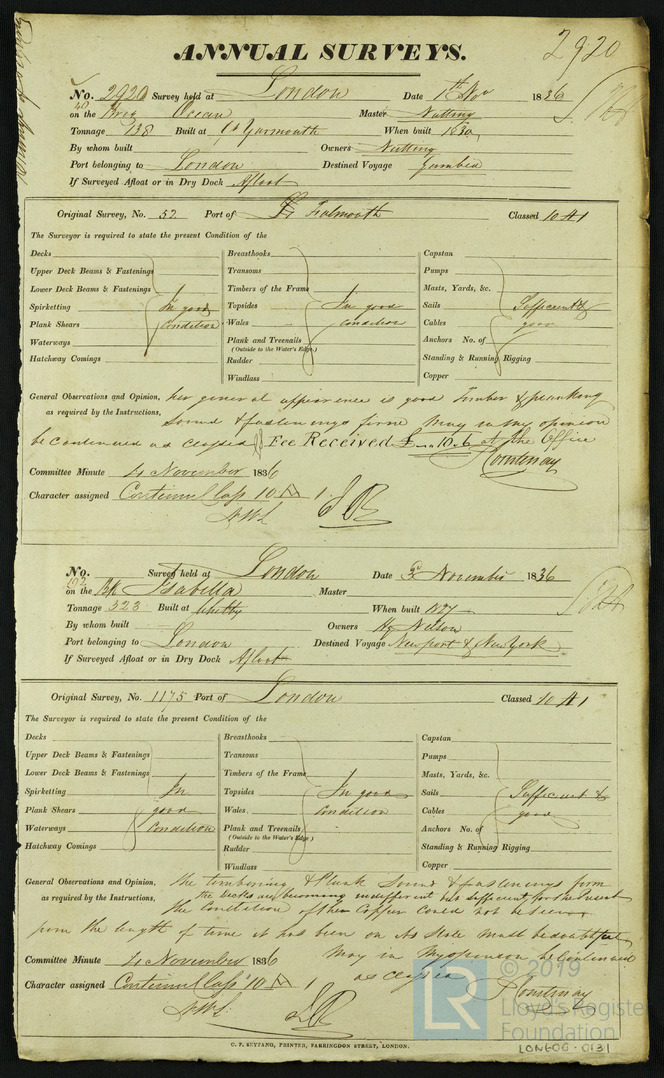 2920
ANNUAL SURVEYS.
No. 2920 Survey held at London Date 1st Nov 1836
on the Brig Ocean Master Nutting
Tonnage 138 Built at Gt Yarmouth When built 1830
By whom built Owners Nutting
Port belonging to London Destined Voyage Gambia
If Surveyed Afloat or in Dry Dock Afloat
Original Survey, No. 52 Port of Falmouth Classed 10 A 1
The Surveyor is required to state the present Condition of the
Decks Breasthooks Capstan
Upper Deck Beams & Fastenings Transoms Pumps
Lower Deck Beams & Fastenings Timbers of the Frame Masts, Yards, &c.
Spirketting In good Topsides In good Sails Sufficient &
Plank Shears Condition Wales Condition Cables good
Waterways Plank and Treenails Anchors No. of
(Outside to the Water's Edge.)
Hatchway Comings Rudder Standing & Running Rigging
Windlass Copper
General Observations and Opinion, her general appearance is good Timber & planking
as required by the Instructions, Sound & fastenings firm May in my opinion
be continued as classed Fee Received £ 10.6 at the Office
Courtenay
Committee Minute 4 November 1836
Character assigned Continued Class 10 A 1
No. Survey held at London Date 3 November 1836
on the Bk Isabella Master
Tonnage 323 Built at Whitby When built 1827
By whom built Owners Hy Nelson
Port belonging to London Destined Voyage Newport & New York
If Surveyed Afloat or in Dry Dock Afloat
Original Survey, No. 1175 Port of London Classed 10 A 1
The Surveyor is required to state the present Condition of the
Decks Breasthooks Capstan
Upper Deck Beams & Fastenings Transoms Pumps
Lower Deck Beams & Fastenings Timbers of the Frame Masts, Yards, &c.
Spirketting In Topsides In good Sails Sufficient &
Plank Shears good Wales Condition Cables good
Waterways Condition Plank and Treenails Anchors No. of
(Outside to the Water's Edge.)
Hatchway Comings Rudder Standing & Running Rigging
Windlass Copper
General Observations and Opinion, the timbering & Plank Sound & fastenings firm
the Decks are becoming indifferent but sufficient for the Present
as required by the Instructions, The Condition of the Copper could not be seen
from the length of time it has been on its State must be doubtful
Committee Minute 4 November 1836 May in My opinion be Continued
as classed
Character assigned Continued Class 10 A 1 Courtenay
C. F. SEYFANG, PRINTER, FARRINGDON STREET, LONDON.
LR © 2019
Lloyd's Register
Foundation
LON606-0131